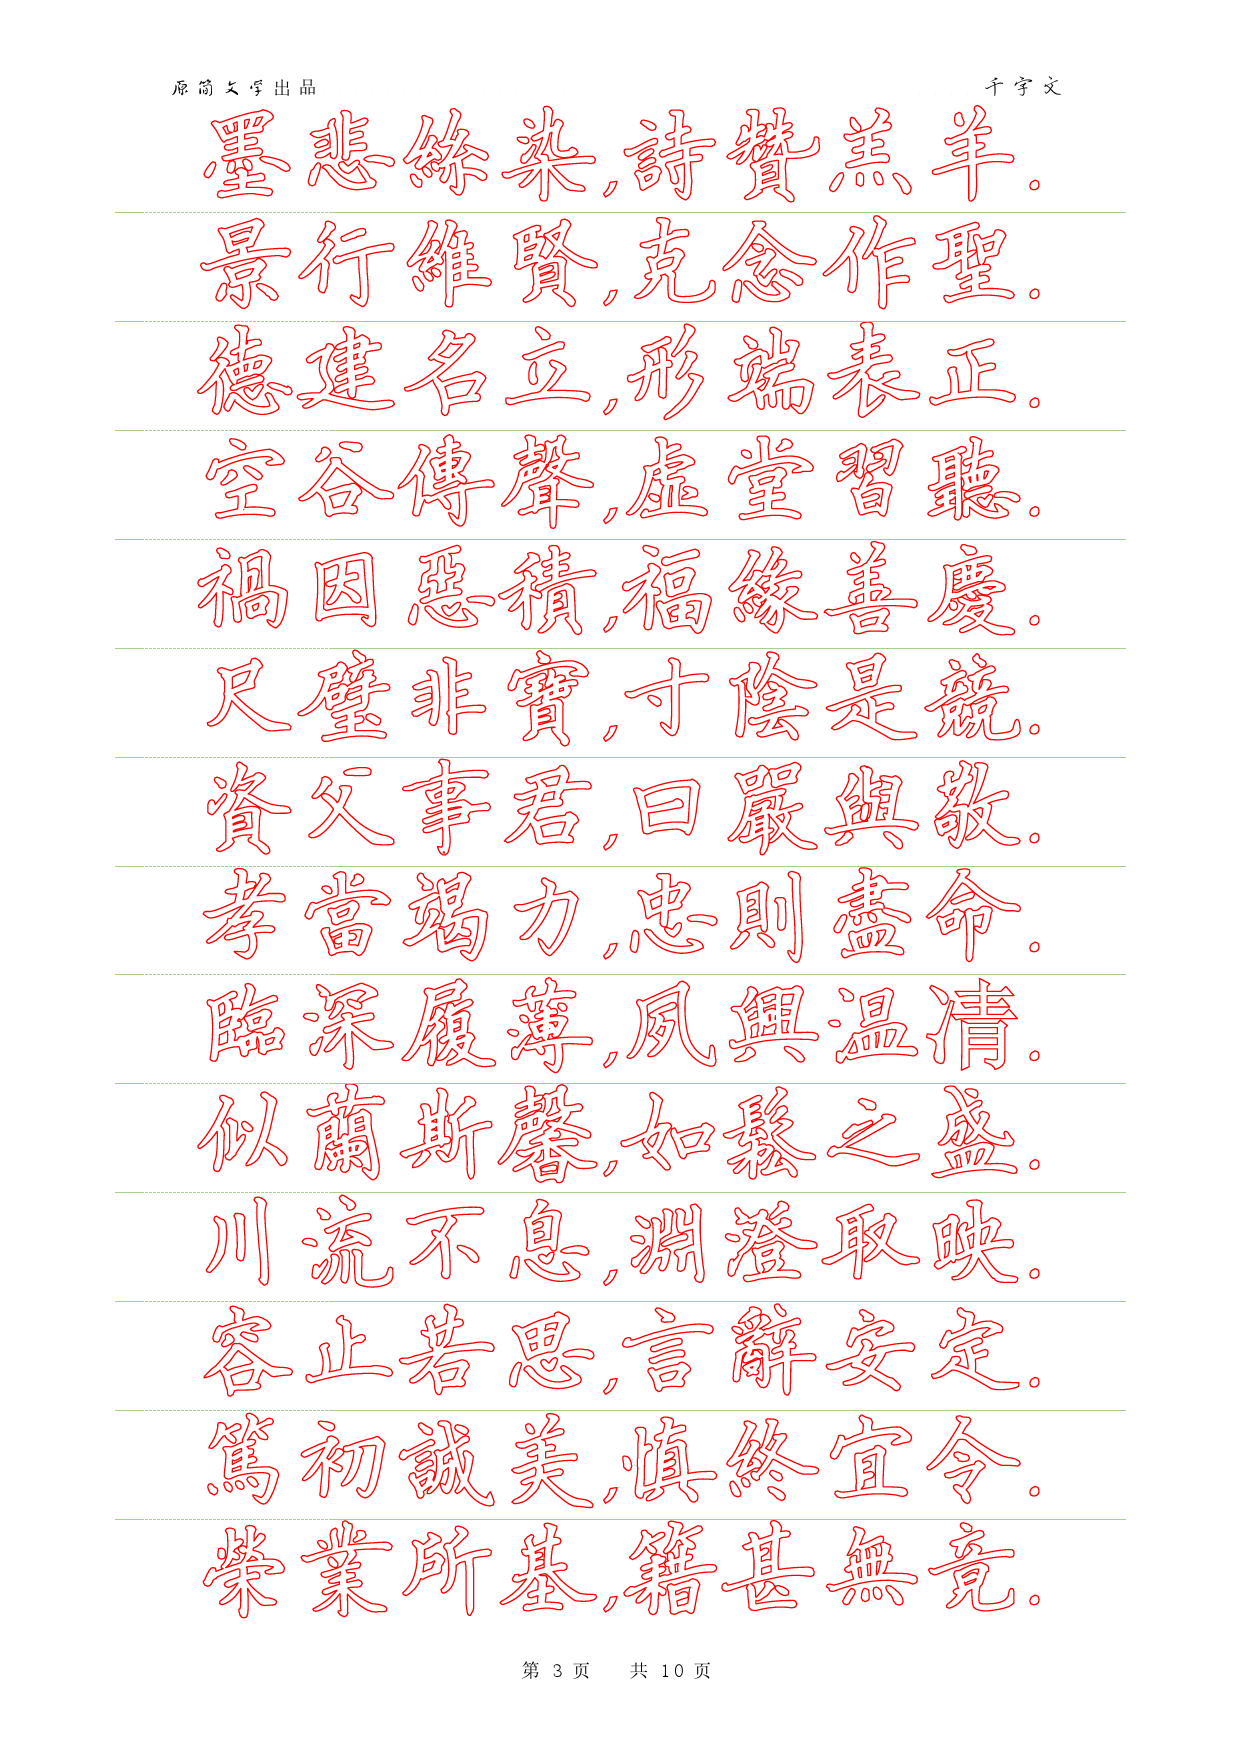 原简文学出品 千字文
墨悲絲染,詩贊羔羊.
景行維賢,克念作聖.
德建名立,形端表正.
空谷傳聲,虛堂習聽.
禍因惡積,福緣善慶.
尺璧非寶,寸陰是競.
資父事君,曰嚴與敬.
孝當竭力,忠則盡命.
臨深履薄,夙興温凊.
似蘭斯馨,如鬆之盛.
川流不息,淵澄取映.
容止若思,言辭安定.
篤初誠美,慎終宜令.
榮業所基,籍甚無竟.
第 3 页 共 10 页